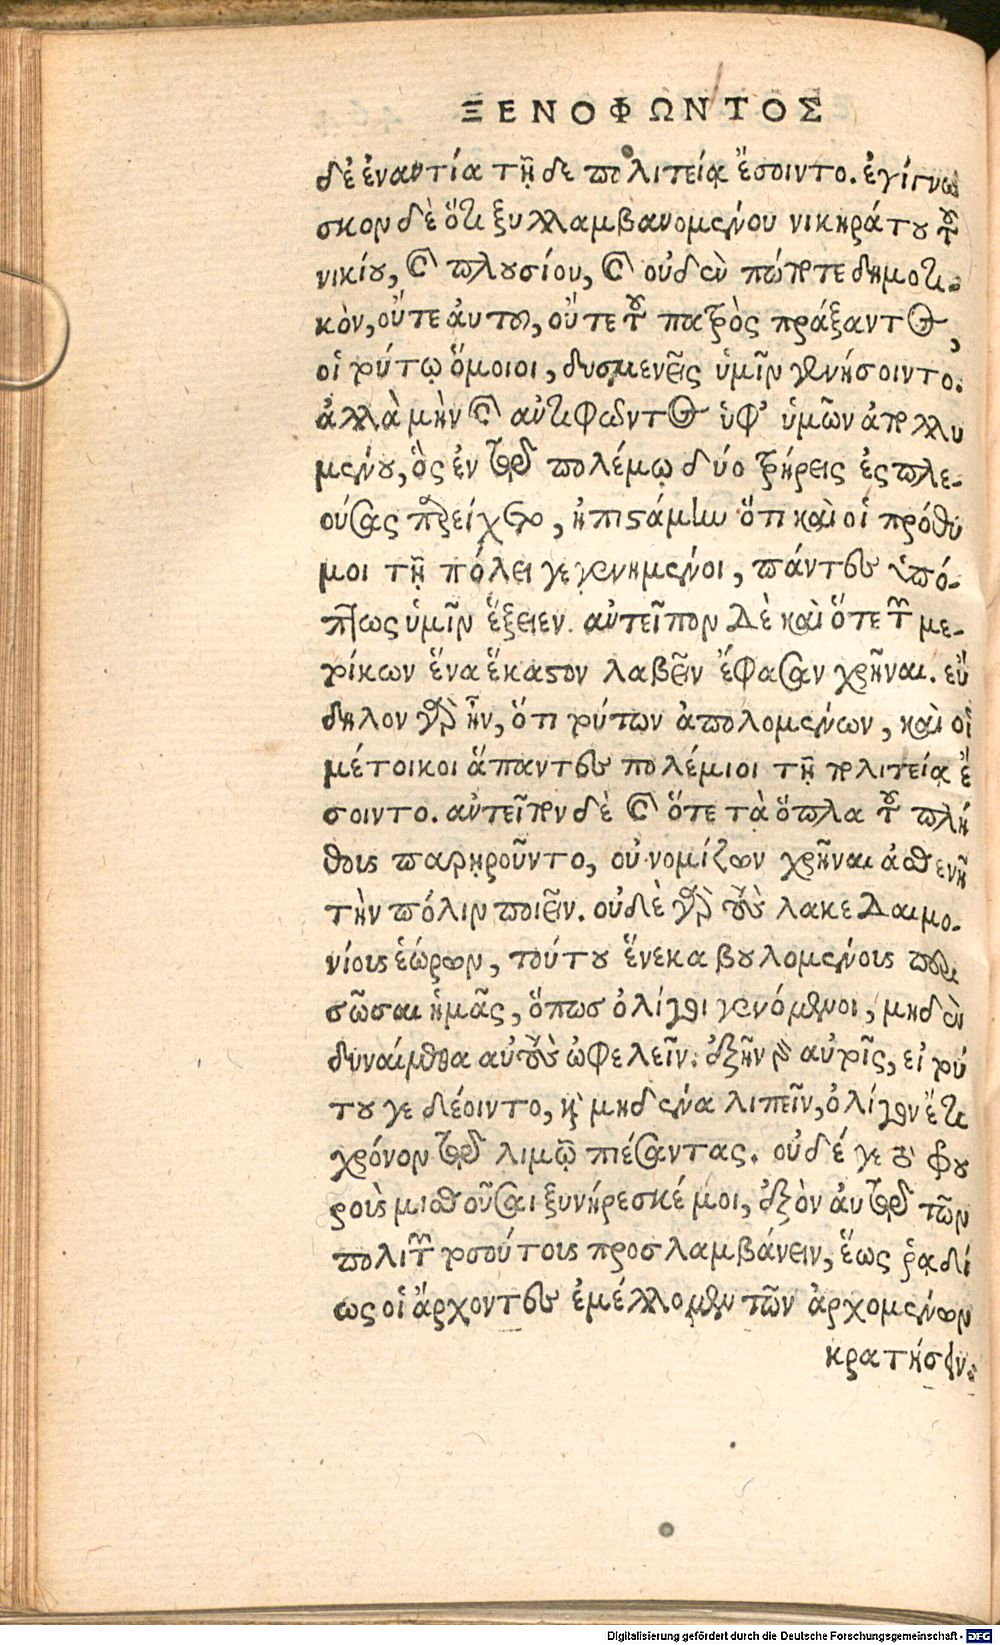 ΞΕΝΟΦΩΝΤΟΣ
δὲ ἐναντία τῇ δε πολιτείᾳ ἔσοιντο. ἐγίγνω
σκον δὲ ὅτι ξυλλαμβανομένου νικηράτου τοῦ
νικίου, καὶ πλουσίου, καὶ οὐδὲν πώποτε δημοτι-
κὸν, οὔτε αὐτοῦ, οὔτε τοῦ πατρὸς πράξαντος,
οἱ τούτῳ ὅμοιοι, δυσμενεῖς ὑμῖν γενήσοιντο.
ἀλλὰ μὴν καὶ αὐτιφῶντος ὑφ’ ὑμῶν ἀπολλυ
μένου, ὃς ἐν τῷ πολέμῳ δύο τριήρεις ἐς πλε-
ούσας παρείχετο, ἠπιστάμην ὅτι καὶ οἱ πρόθυ
μοι τῇ πόλει γεγενημένοι, πάντες ὑπό-
πτως ὑμῖν ἕξειεν. αὐτεῖπον δὲ καὶ ὅτε τῶν με-
τοίκων ἕνα ἕκαστον λαβεῖν ἔφασαν χρῆναι. εὔ
δηλον γὰρ ἦν, ὅτι τούτων ἀπολομένων, καὶ οἱ
μέτοικοι ἅπαντες πολέμιοι τῇ πολιτείᾳ ἔ
σοιντο. αὐτεῖπον δὲ καὶ ὅτε τὰ ὅπλα τοῦ πλή
θους παρῃροῦντο, οὐ νομίζων χρῆναι ἀσθενῆ
τὴν πόλιν ποιεῖν. οὐδὲ γὰρ τοὺς λακεδαιμο-
νίους ἑώρων, τούτου ἕνεκα βουλομένους περι
σῶσαι ἡμᾶς, ὅπως ὀλίγοι γενόμενοι, μηδὲν
δυναίμεθα αὐτοὺς ὠφελεῖν. ἐξῆν γὰρ αὐτοῖς, εἰ τού
του γε δέοιντο, καὶ μηδένα λιπεῖν, ὀλίγον ἔτι
χρόνον τῷ λιμῷ πιέσαντας. οὐδέ γε τὸ φρου
ροὺς μισθοῦσαι ξυνήρεσκέ μοι, ἐξὸν αὐτῷ τῶν
πολιτῶν τοσούτους προσλαμβάνειν, ἕως ῥᾳδί
ως οἱ ἄρχοντες ἐμέλλομεν τῶν ἀρχομένων
κρατήσειν.
Digitalisierung gefördert durch die Deutsche Forschungsgemeinschaft - DFG